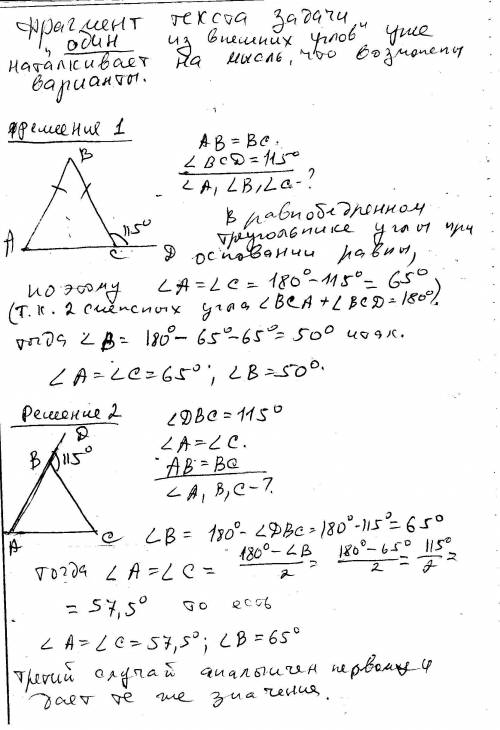 фрагмент текста задачи
„один из внешних углов“ уже
наталкивает на мысль, что возможны
варианты.
Решение 1
AB = BC.
∠BCD = 115°
∠A, ∠B, ∠C - ?
B
A
C
D
115°
В равнобедренном
треугольнике углы при
основании равны,
поэтому ∠A = ∠C = 180° - 115° = 65°
(т.к. 2 смежных угла ∠BCA + ∠BCD = 180°).
тогда ∠B = 180° - 65° - 65° = 50° итак.
∠A = ∠C = 65°; ∠B = 50°.
Решение 2
D
B
115°
A
C
∠DBC = 115°
∠A = ∠C.
AB = BC
∠A, B, C - ?
∠B = 180° - ∠DBC = 180° - 115° = 65°
тогда ∠A = ∠C = (180° - ∠B)/2 = (180° - 65°)/2 = 115°/2 =
= 57,5° то есть
∠A = ∠C = 57,5°; ∠B = 65°
третий случай аналогичен первому и
дает те же значения.